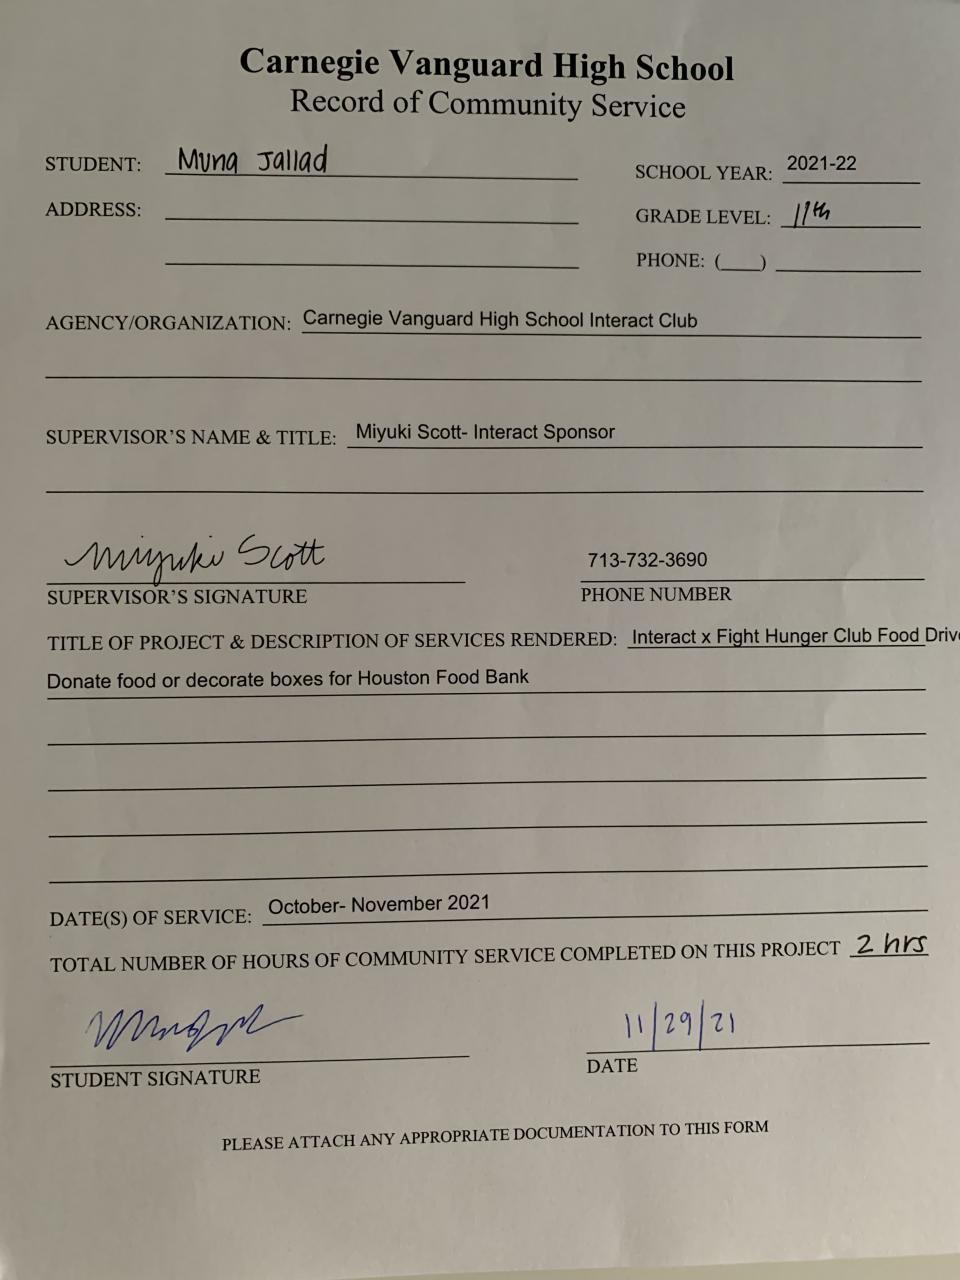 Carnegie Vanguard High School
Record of Community Service
STUDENT: Muna Jallad
SCHOOL YEAR: 2021-22
ADDRESS:
GRADE LEVEL: 11th
PHONE: (___)
AGENCY/ORGANIZATION: Carnegie Vanguard High School Interact Club
SUPERVISOR'S NAME & TITLE: Miyuki Scott- Interact Sponsor
Miyuki Scott
713-732-3690
SUPERVISOR'S SIGNATURE
PHONE NUMBER
TITLE OF PROJECT & DESCRIPTION OF SERVICES RENDERED: Interact x Fight Hunger Club Food Drive
Donate food or decorate boxes for Houston Food Bank
DATE(S) OF SERVICE: October- November 2021
TOTAL NUMBER OF HOURS OF COMMUNITY SERVICE COMPLETED ON THIS PROJECT 2 hrs
11/29/21
STUDENT SIGNATURE
DATE
PLEASE ATTACH ANY APPROPRIATE DOCUMENTATION TO THIS FORM